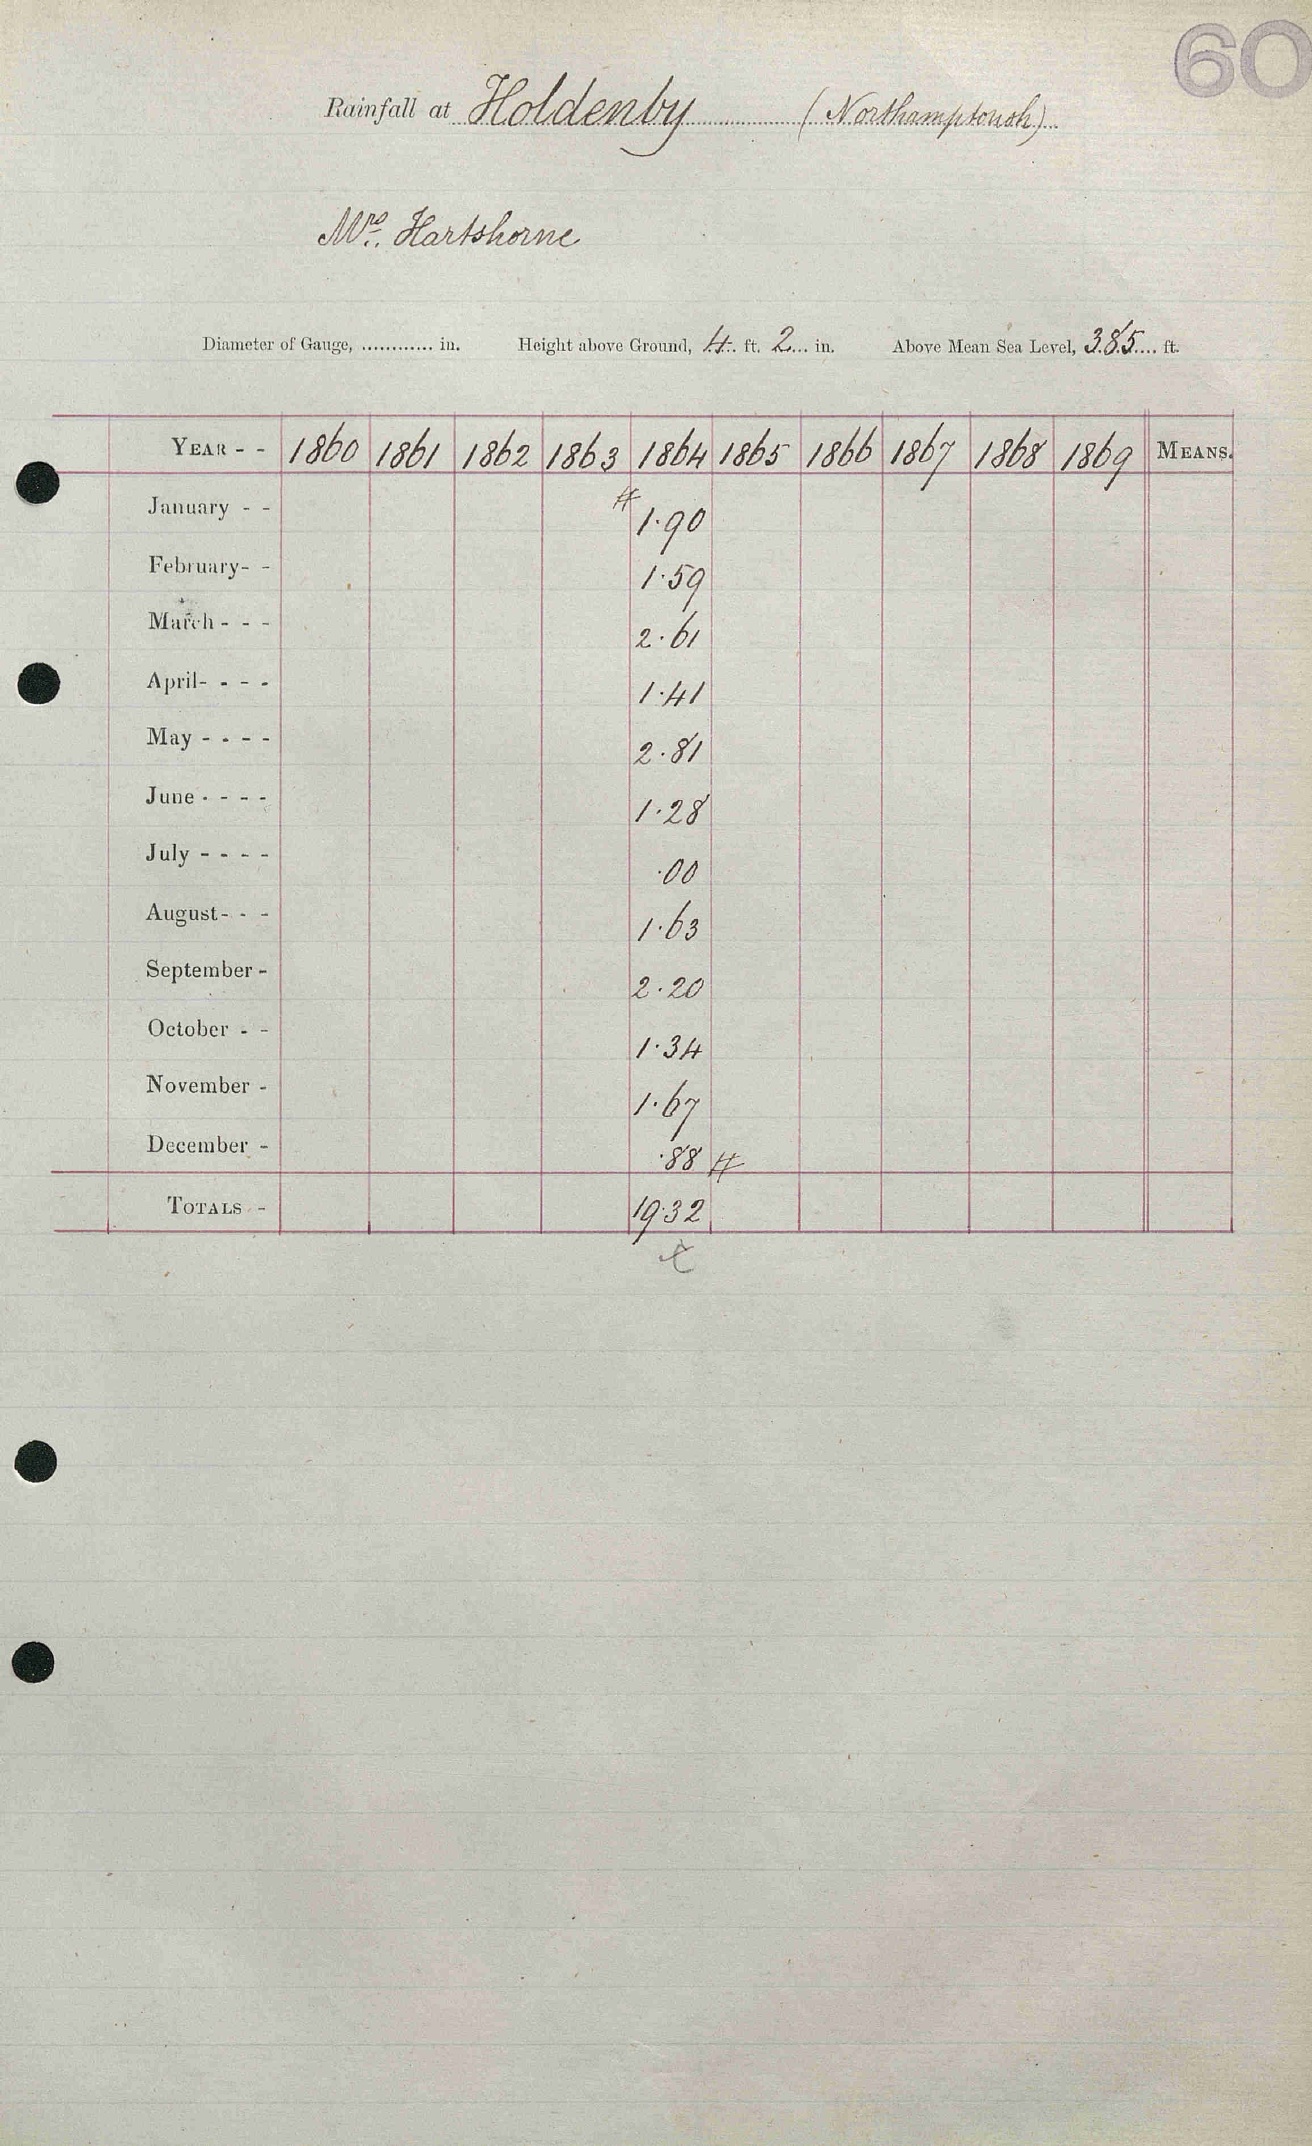 60
Rainfall at Holdenby (Northamptonsh)
Mrs. Hartshorne
Diameter of Gauge, ............ in. Height above Ground, 4 ft. 2 in. Above Mean Sea Level, 385 ft.
YEAR - - 1860 1861 1862 1863 1864 1865 1866 1867 1868 1869 MEANS.
January - - # 1.90
February - - 1.59
March - - - 2.61
April - - - - 1.41
May - - - - 2.81
June - - - - 1.28
July - - - - .00
August - - - 1.63
September - 2.20
October - - 1.34
November - 1.67
December - .88 #
TOTALS - 19.32